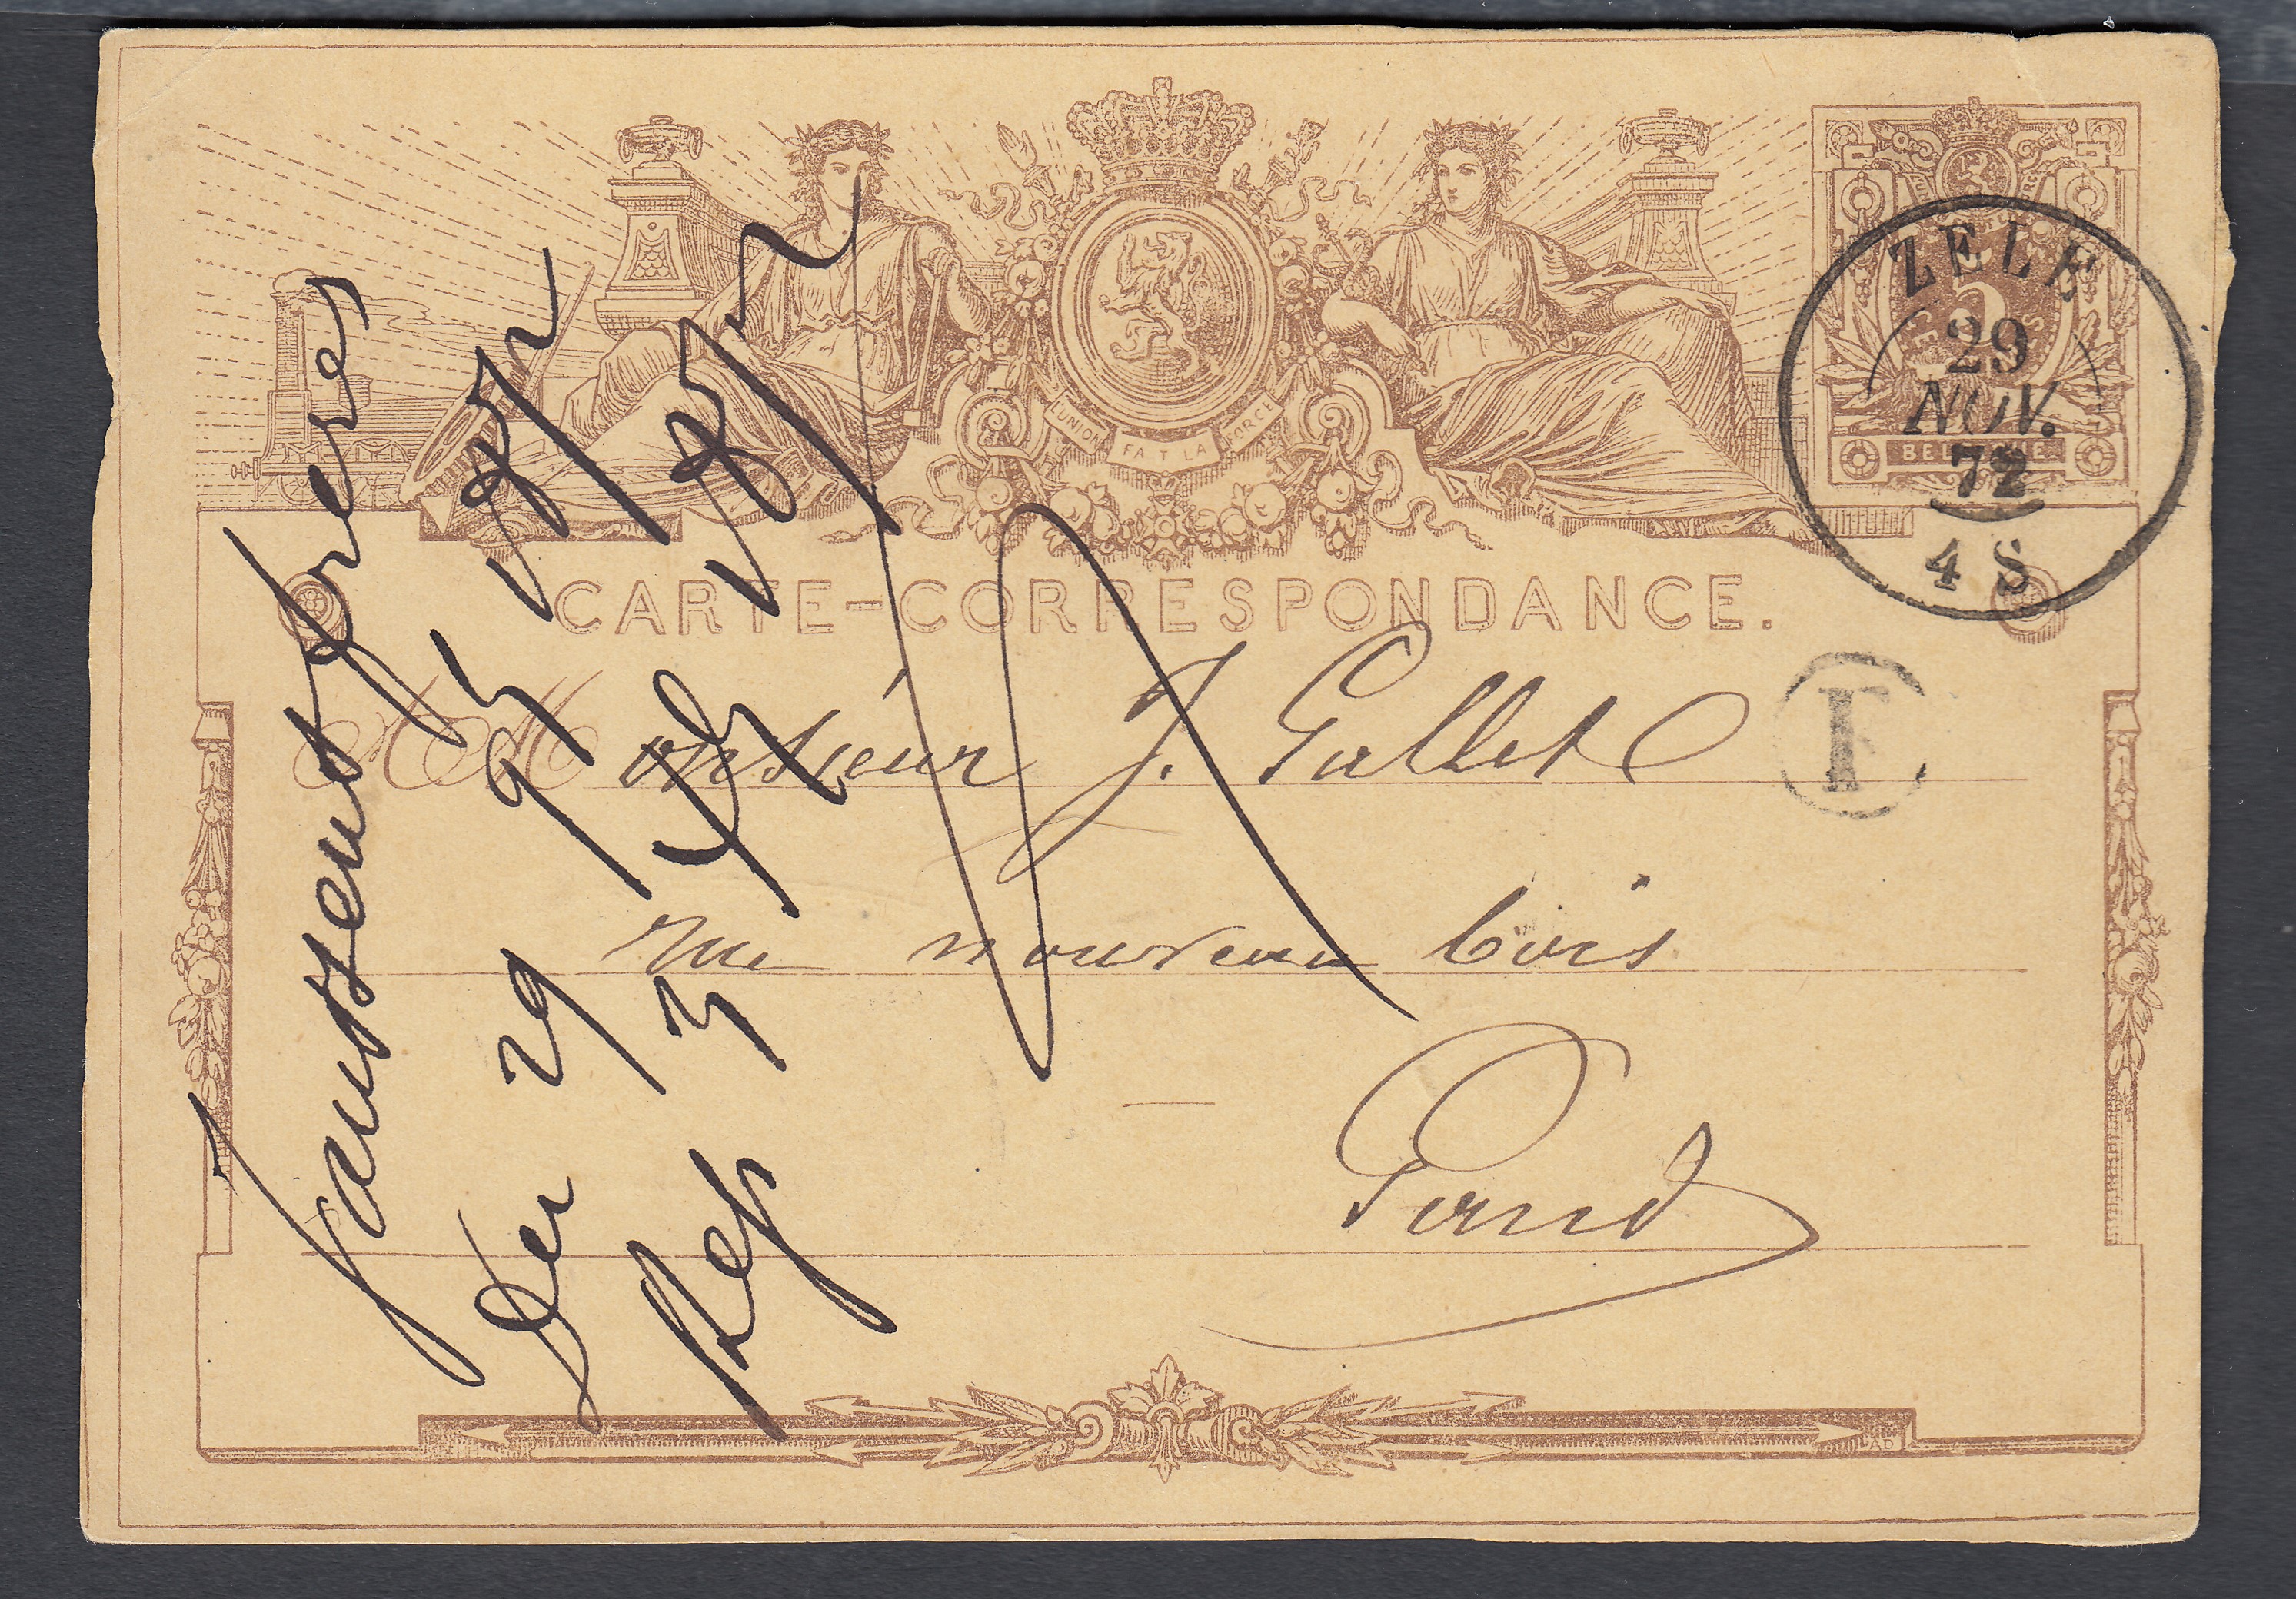 L'UNION FAIT LA FORCE
5
BELGIQUE
ZELE
29
NOV.
72
4 S
CARTE-CORRESPONDANCE.
Monsieur J. Gallet
rue nouveau bois
Gand
frères
29 9
Rep 3